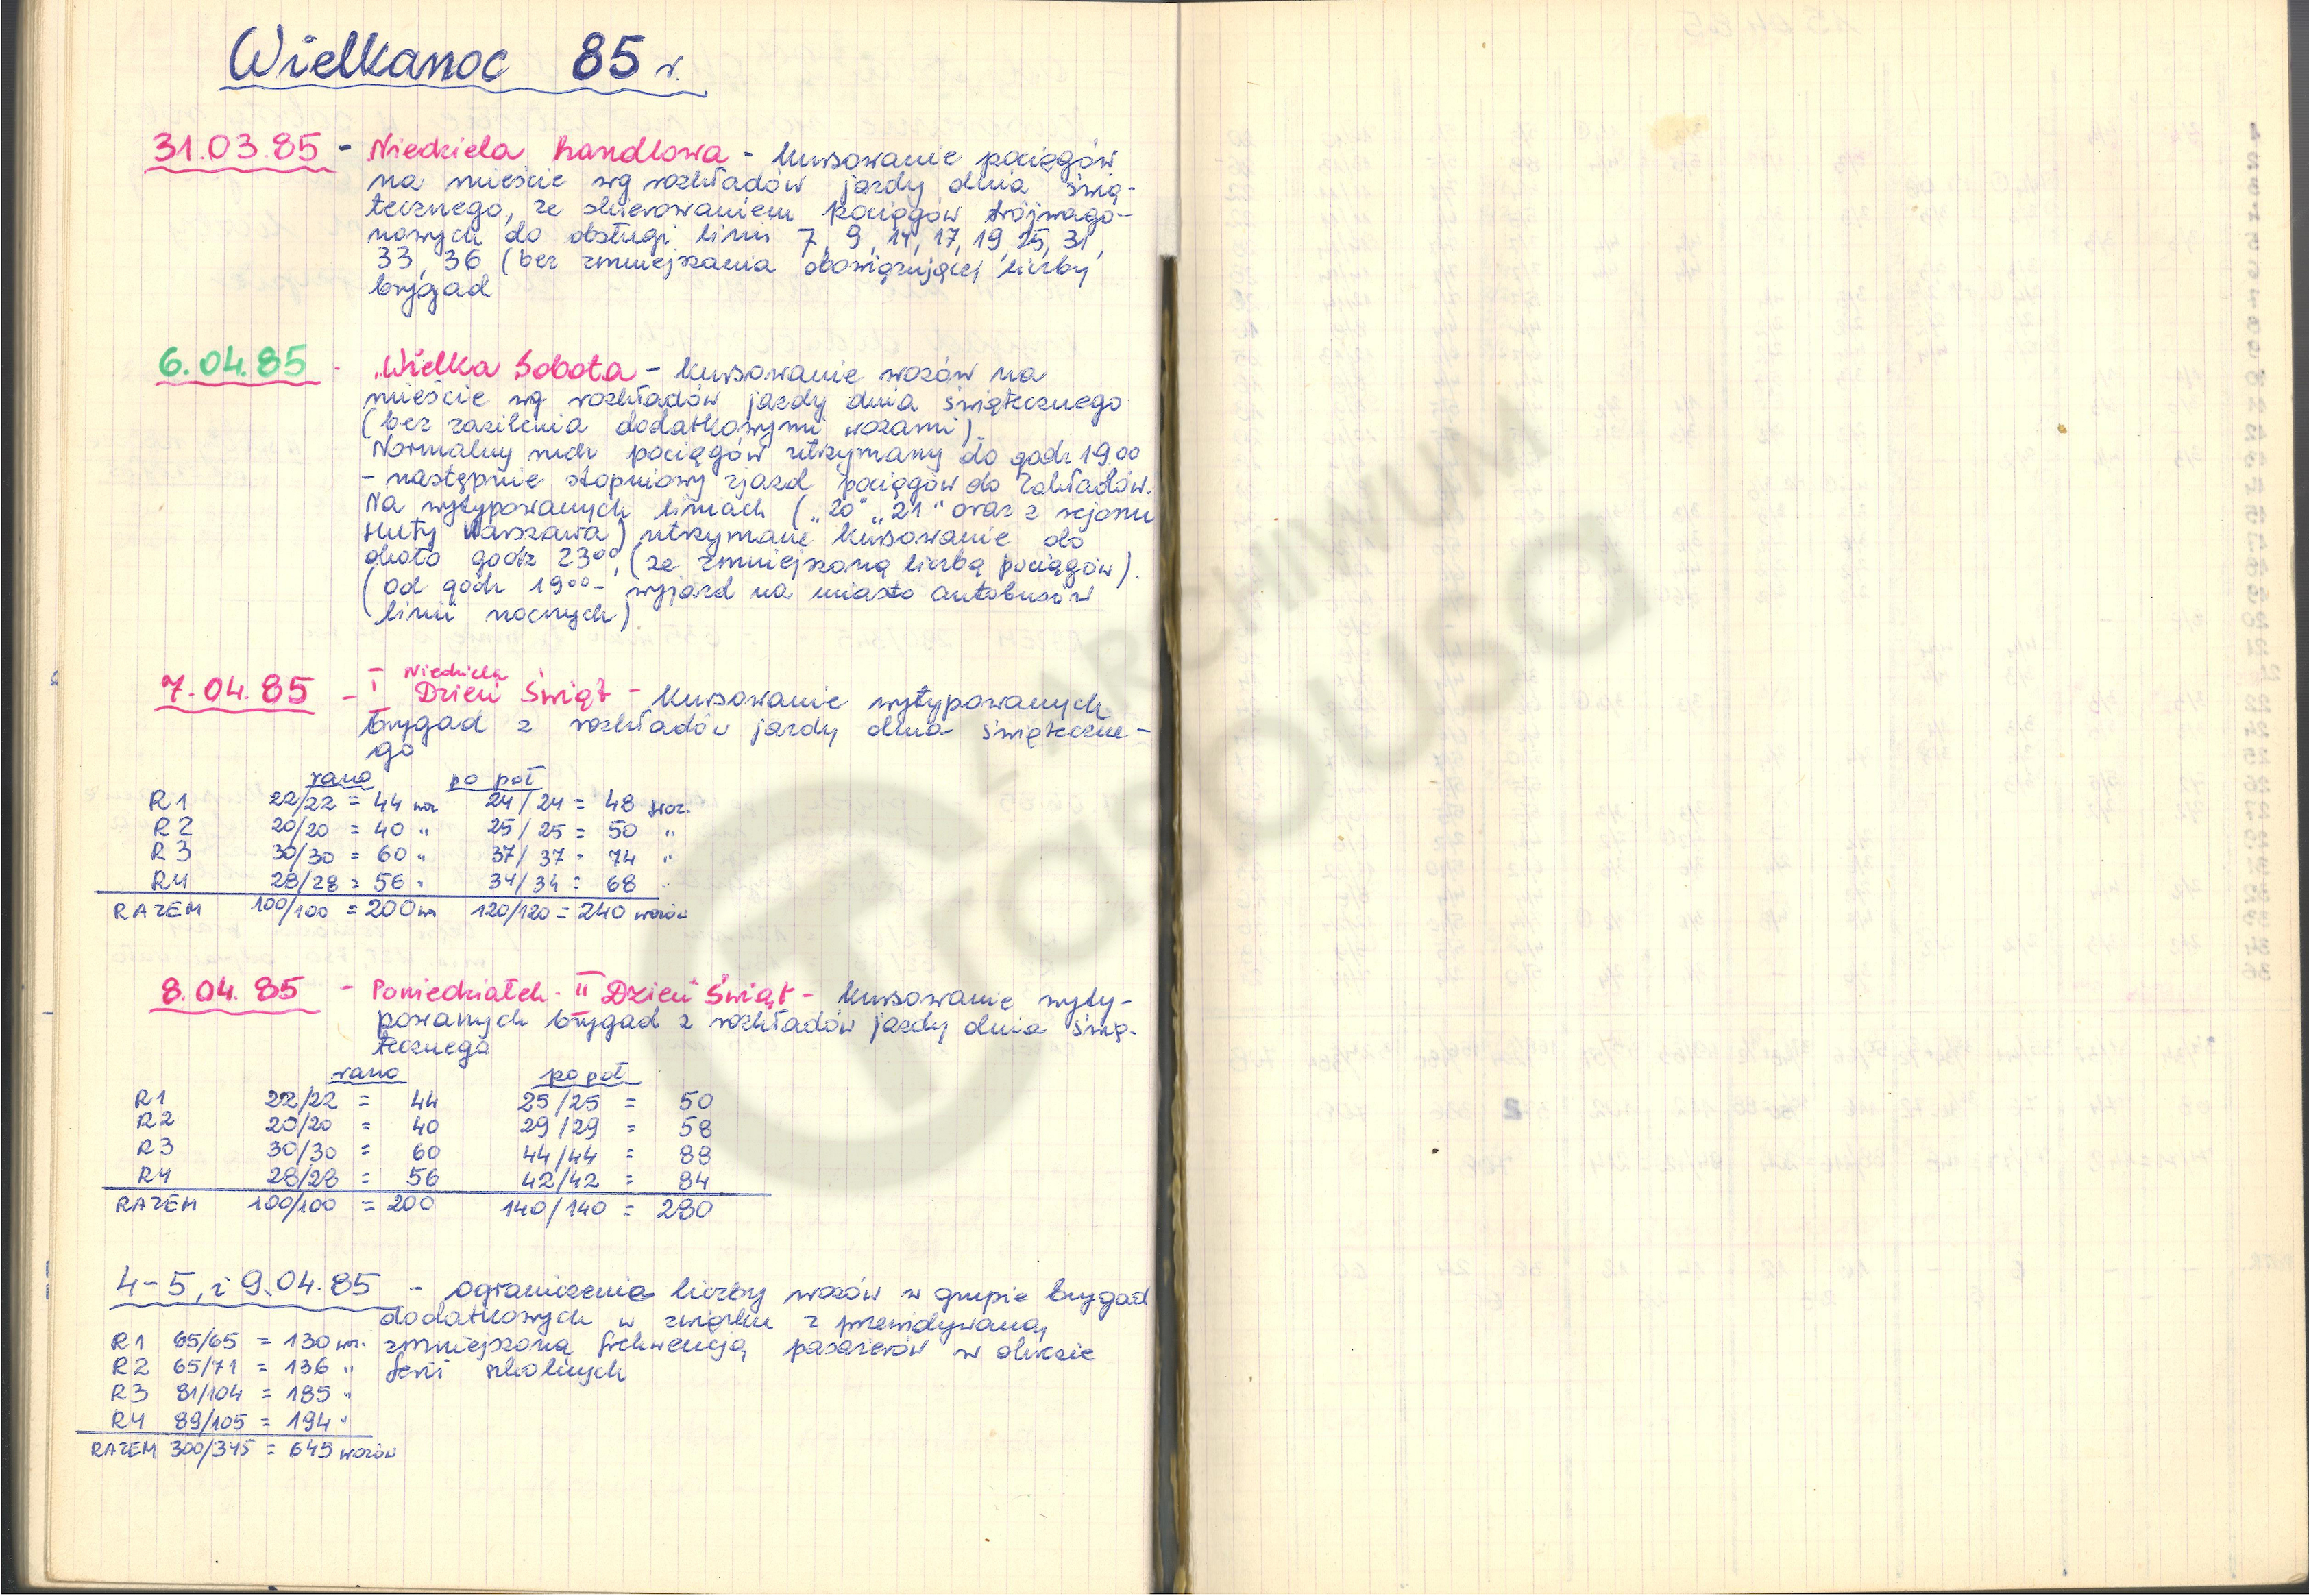 Wielkanoc 85 r.
31.03.85 - Niedziela handlowa - kursowanie pociągów
na mieście wg rozkładów jazdy dnia świą-
tecznego, ze skierowaniem pociągów trójwago-
nowych do obsługi linii 7, 9, 14, 17, 19, 25, 31,
33, 36 (bez zmniejszania obowiązującej liczby
brygad
6.04.85 - "Wielka Sobota - kursowanie wozów na
mieście wg rozkładów jazdy dnia świątecznego
(bez zasilenia dodatkowymi wozami).
Normalny ruch pociągów utrzymany do godz 19.00
- następnie stopniowy zjazd pociągów do Zakładów.
Na wytypowanych liniach ("20" "21" oraz z rejonu
Huty Warszawa) utrzymane kursowanie do
około godz 23⁰⁰, (ze zmniejszoną liczbą pociągów).
(od godz 19⁰⁰ - wyjazd na miasto autobusów
linii nocnych)
7.04.85 - I Niedziela Dzień Świąt - kursowanie wytypowanych
brygad z rozkładów jazdy dnia świąteczne-
go
rano po poł
R1 22/22 = 44 woz 24/24 = 48 woz.
R2 20/20 = 40 " 25/25 = 50 "
R3 30/30 = 60 " 37/37 = 74 "
R4 28/28 = 56 " 34/34 = 68 "
RAZEM 100/100 = 200 woz 120/120 = 240 wozów
8.04.85 - Poniedziałek - II Dzień Świąt - kursowanie wyty-
powanych brygad z rozkładów jazdy dnia świą-
tecznego
rano po poł
R1 22/22 = 44 25/25 = 50
R2 20/20 = 40 29/29 = 58
R3 30/30 = 60 44/44 = 88
R4 28/28 = 56 42/42 = 84
RAZEM 100/100 = 200 140/140 = 280
4-5, i 9.04.85 - ograniczenie liczby wozów w grupie brygad
dodatkowych w związku z przewidywaną
R1 65/65 = 130 woz. zmniejszoną frekwencją pasażerów w okresie
R2 65/71 = 136 " ferii szkolnych
R3 81/104 = 185 "
R4 89/105 = 194 "
RAZEM 300/345 = 645 wozów
Z ARCHIWUM